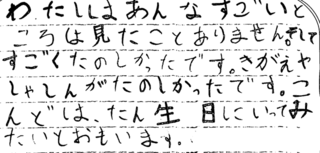 わたししはあんなすごいと
ころは見たことありません。そして
すごくたのしかったです。きがえや
しゃしんがたのしかったです。こ
んどは、たん生日にいってみ
たいとおもいます。